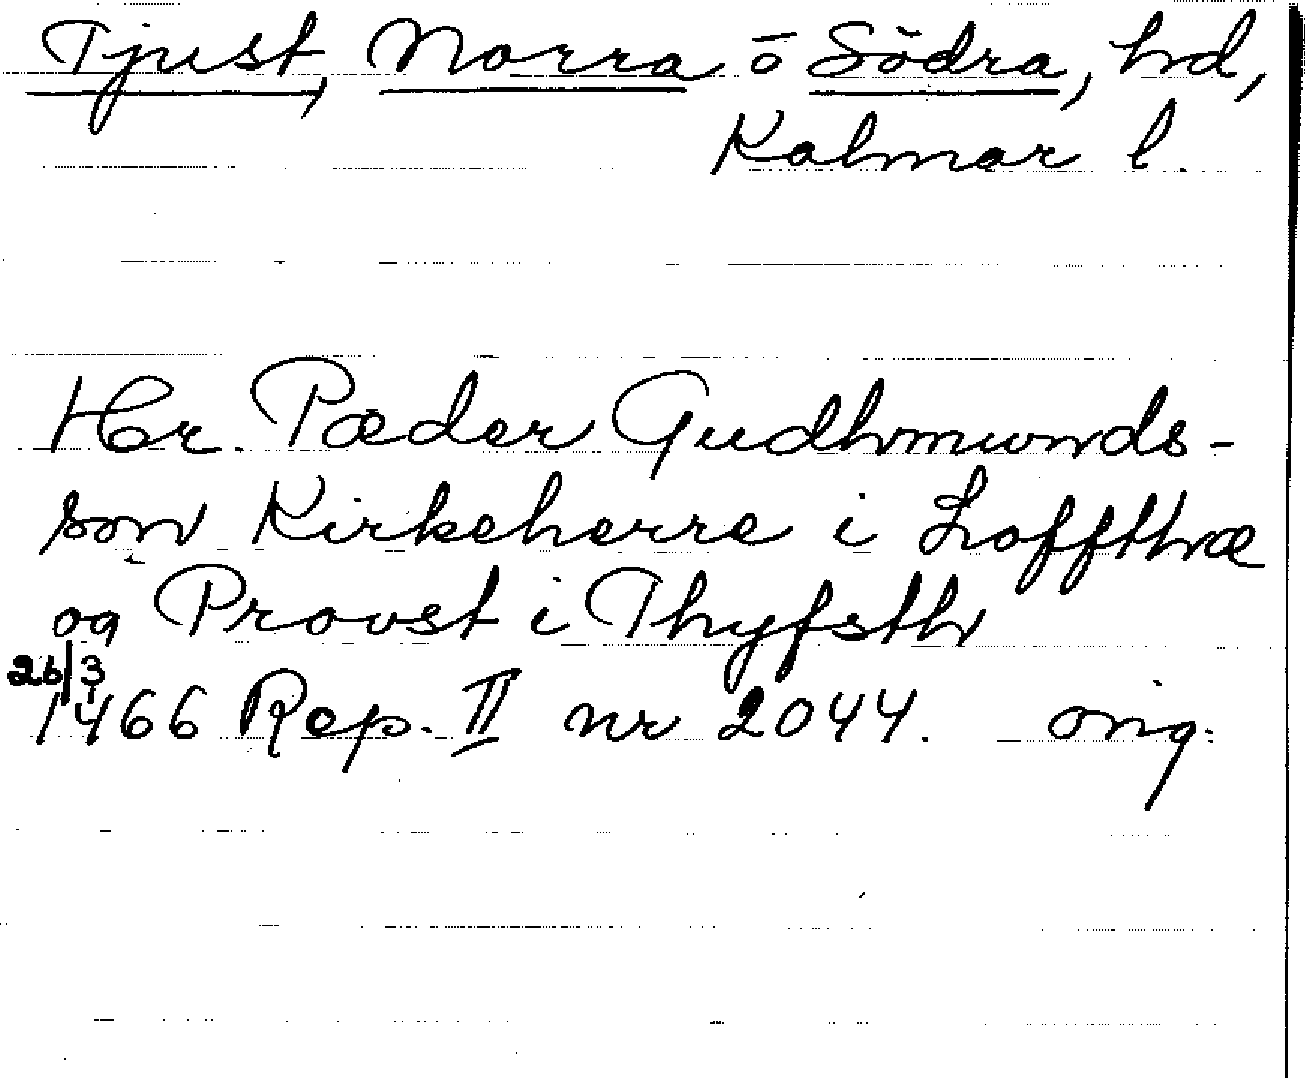 Tjust, Norra o Södra, hd,
Kalmar l.
Hr. Pæder Gudhmunds-
søn Kirkeherre i Loffthæ
og Provst i Thyfsth
26/3
1466 Rep. II nr 2044. orig.